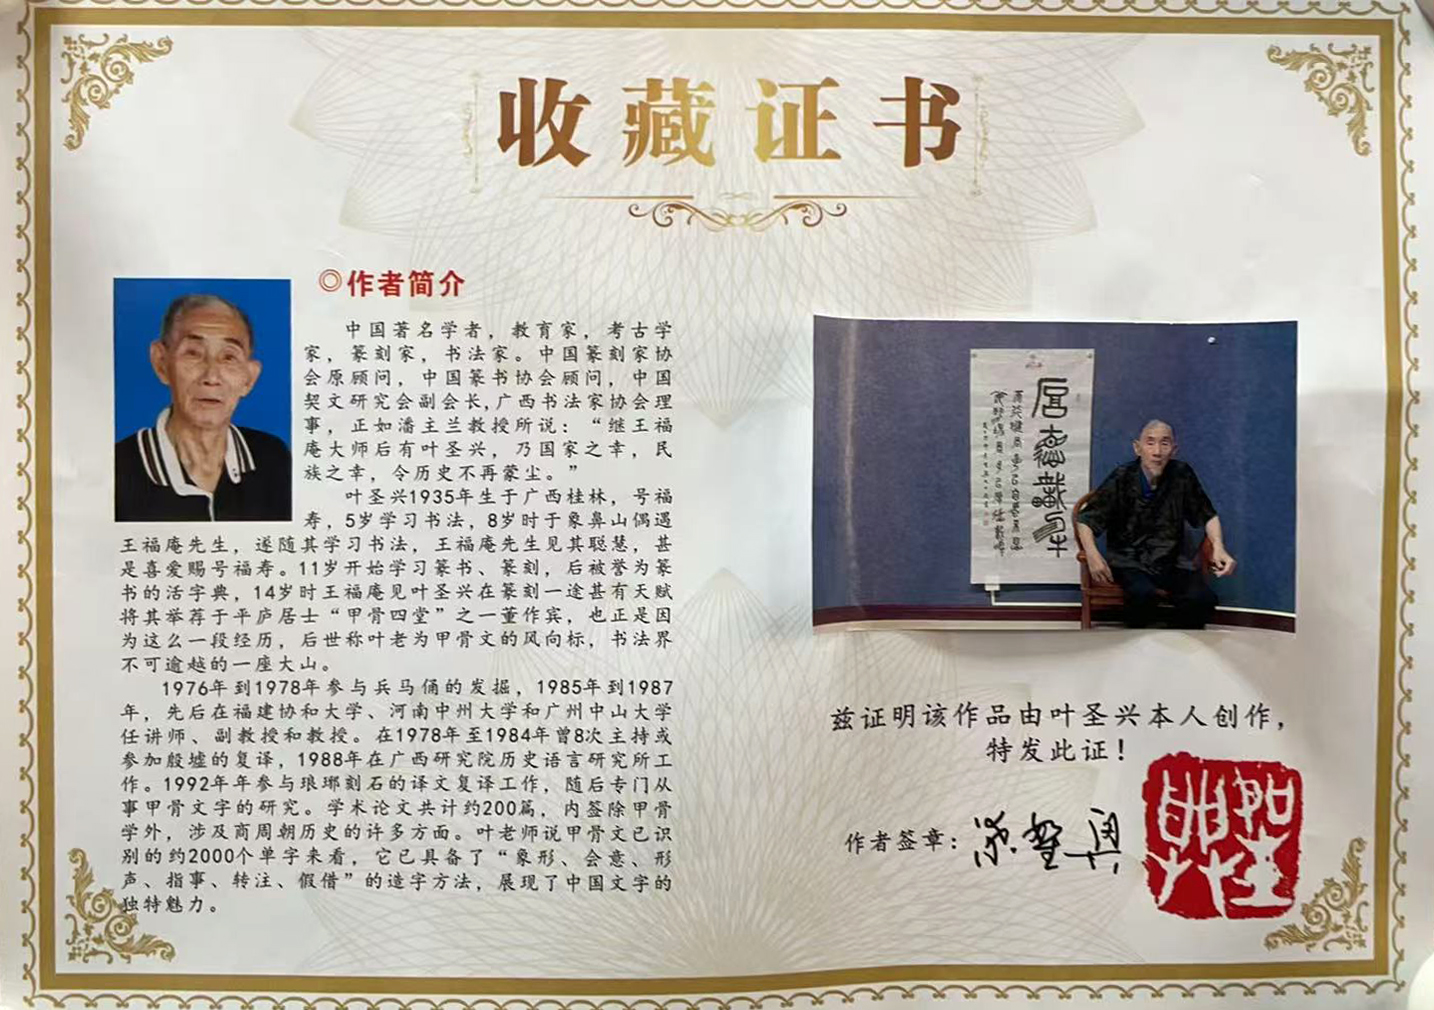 收藏证书
◎作者简介
中国著名学者，教育家，考古学
家，篆刻家，书法家。中国篆刻家协
会原顾问，中国篆书协会顾问，中国
契文研究会副会长,广西书法家协会理
事，正如潘主兰教授所说：“继王福
庵大师后有叶圣兴，乃国家之幸，民
族之幸，令历史不再蒙尘。”
叶圣兴1935年生于广西桂林，号福
寿，5岁学习书法，8岁时于象鼻山偶遇
王福庵先生，遂随其学习书法，王福庵先生见其聪慧，甚
是喜爱赐号福寿。11岁开始学习篆书、篆刻，后被誉为篆
书的活字典，14岁时王福庵见叶圣兴在篆刻一途甚有天赋
将其举荐于平庐居士“甲骨四堂”之一董作宾，也正是因
为这么一段经历，后世称叶老为甲骨文的风向标，书法界
不可逾越的一座大山。
1976年到1978年参与兵马俑的发掘，1985年到1987
年，先后在福建协和大学、河南中州大学和广州中山大学
任讲师、副教授和教授。在1978年至1984年曾8次主持或
参加殷墟的复译，1988年在广西研究院历史语言研究所工
作。1992年年参与琅琊刻石的译文复译工作，随后专门从
事甲骨文字的研究。学术论文共计约200篇，内签除甲骨
学外，涉及商周朝历史的许多方面。叶老师说甲骨文已识
别的约2000个单字来看，它已具备了“象形、会意、形
声、指事、转注、假借”的造字方法，展现了中国文字的
独特魅力。
兹证明该作品由叶圣兴本人创作，
特发此证！
作者签章：